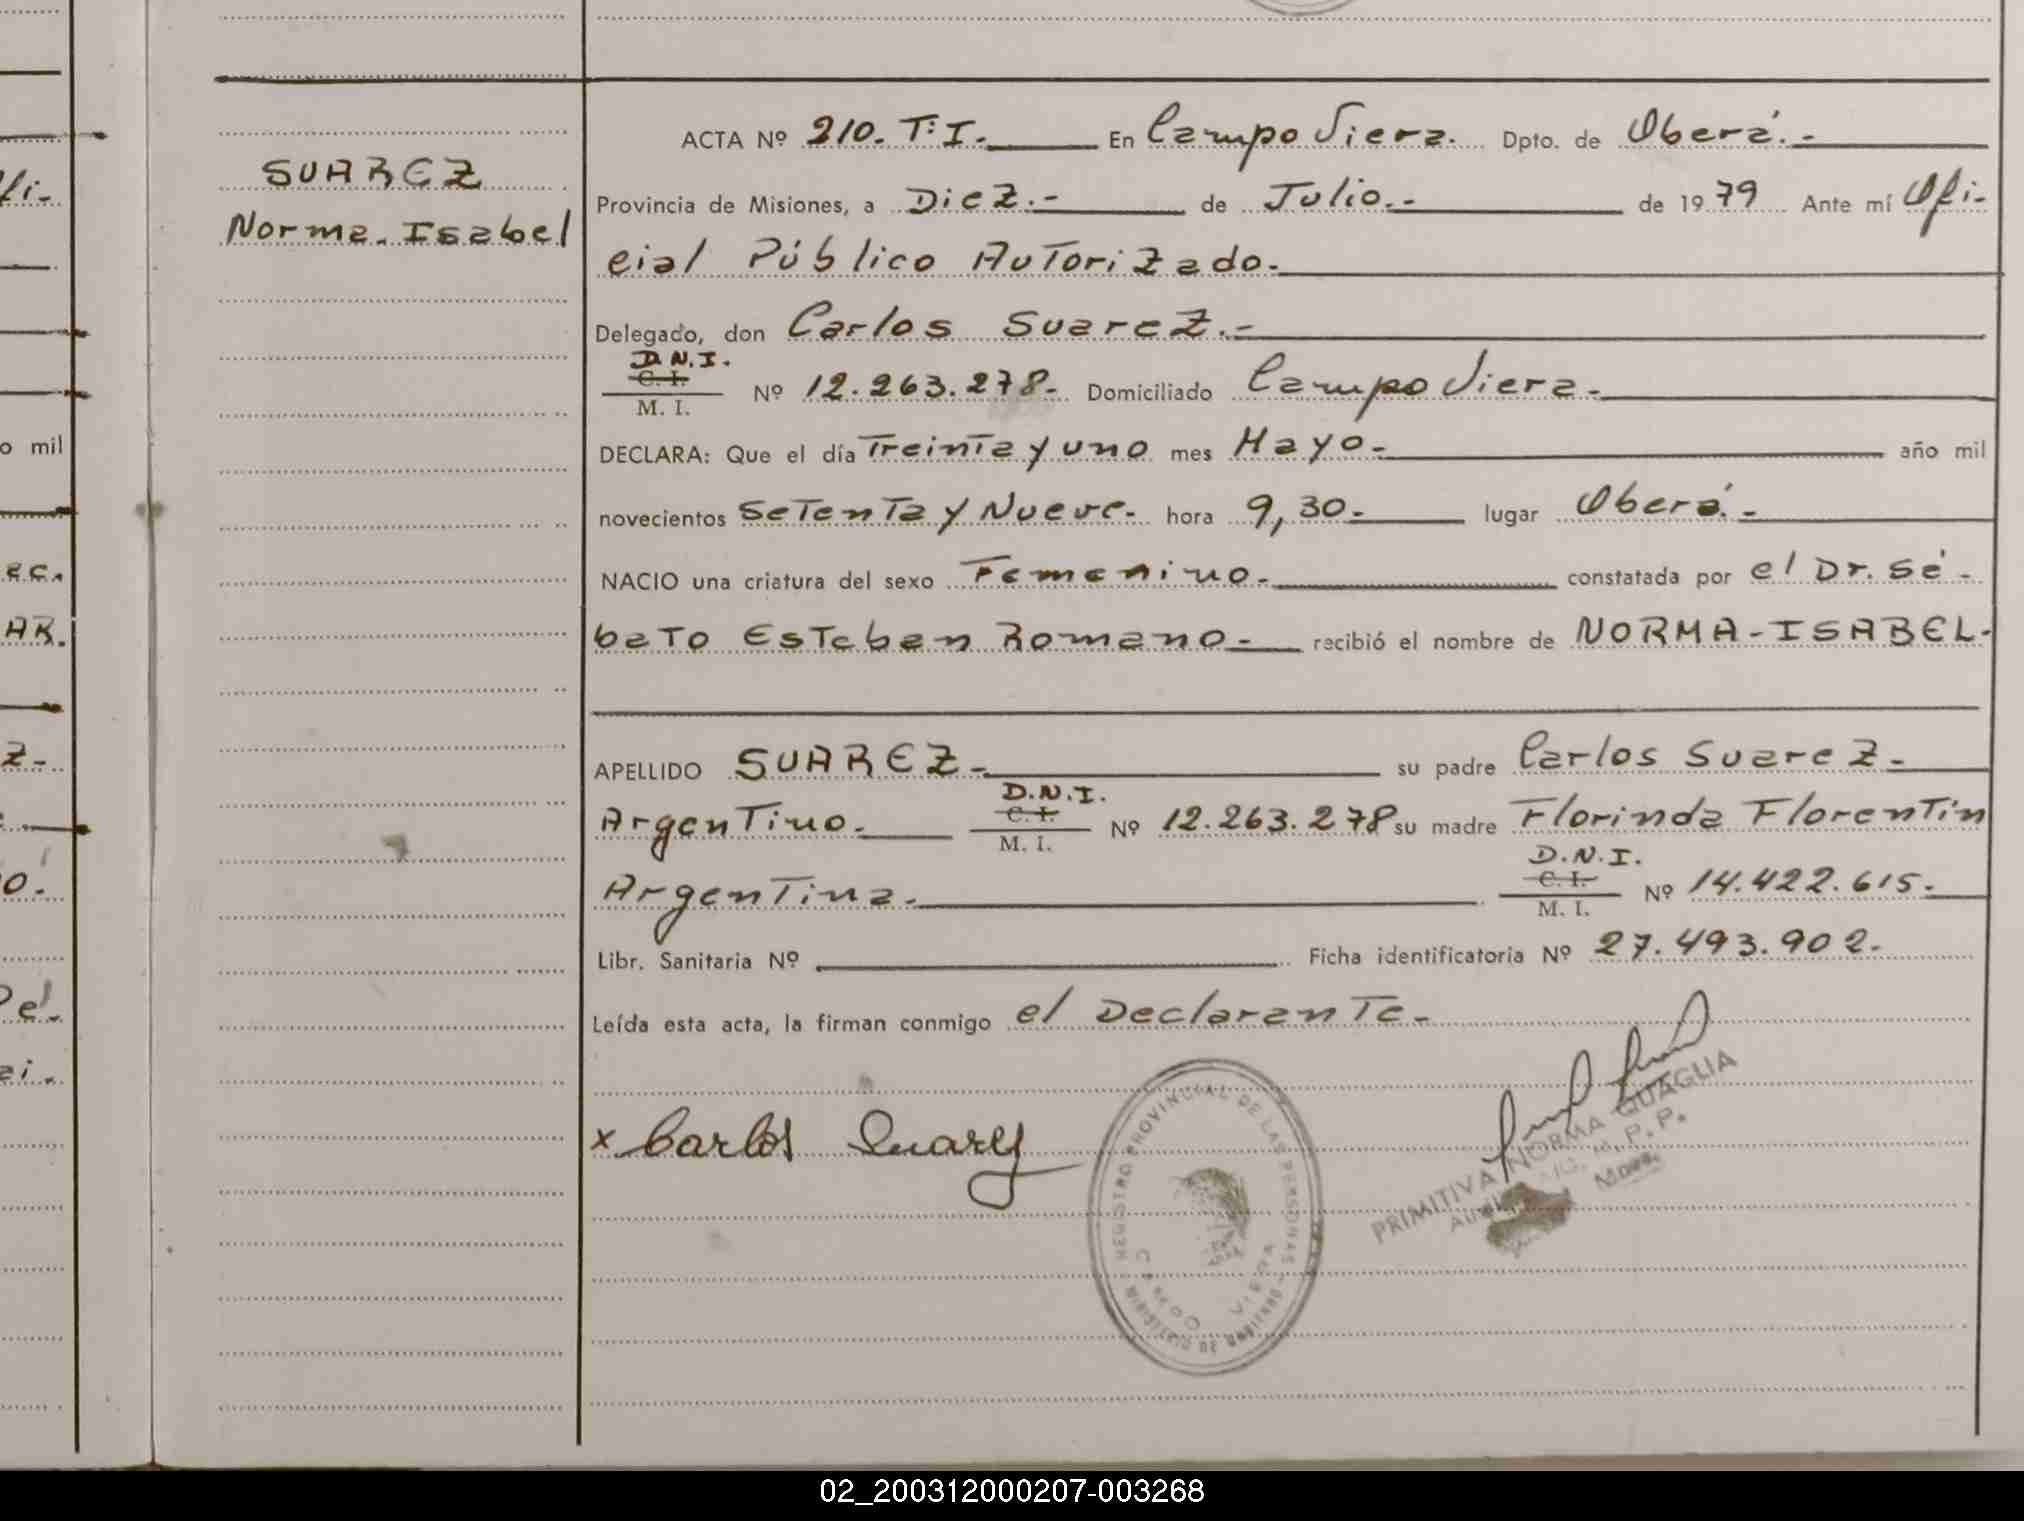 SUAREZ
Norma-Isabel
ACTA Nº 210. Tº I.- En Campo Viera. Dpto. de Oberá.-
Provincia de Misiones, a Diez.- de Julio.- de 1979 Ante mí Ofi-
cial Público Autorizado.-
Delegado, don Carlos Suarez.-
D.N.I.
C. I.
M. I.
Nº 12.263.278.- Domiciliado Campo Viera.-
DECLARA: Que el día Treinta y uno mes Mayo.- año mil
novecientos Setenta y Nueve.- hora 9,30.- lugar Oberá.-
NACIO una criatura del sexo Femenino.- constatada por el Dr. Sé-
bato Esteban Romano.- recibió el nombre de NORMA-ISABEL-
APELLIDO SUAREZ.- su padre Carlos Suarez.-
D.N.I.
Argentino.- C. I. Nº 12.263.278 su madre Florinda Florentin
M. I.
D.N.I.
Argentina.- C. I. Nº 14.422.615.-
M. I.
Libr. Sanitaria Nº Ficha identificatoria Nº 27.493.902.-
Leída esta acta, la firman conmigo el Declarante.-
x Carlos Suarez
REGISTRO PROVINCIAL DE LAS PERSONAS
CAMPO VIERA
PRIMITIVA NORMA QUAGLIA
02_200312000207-003268